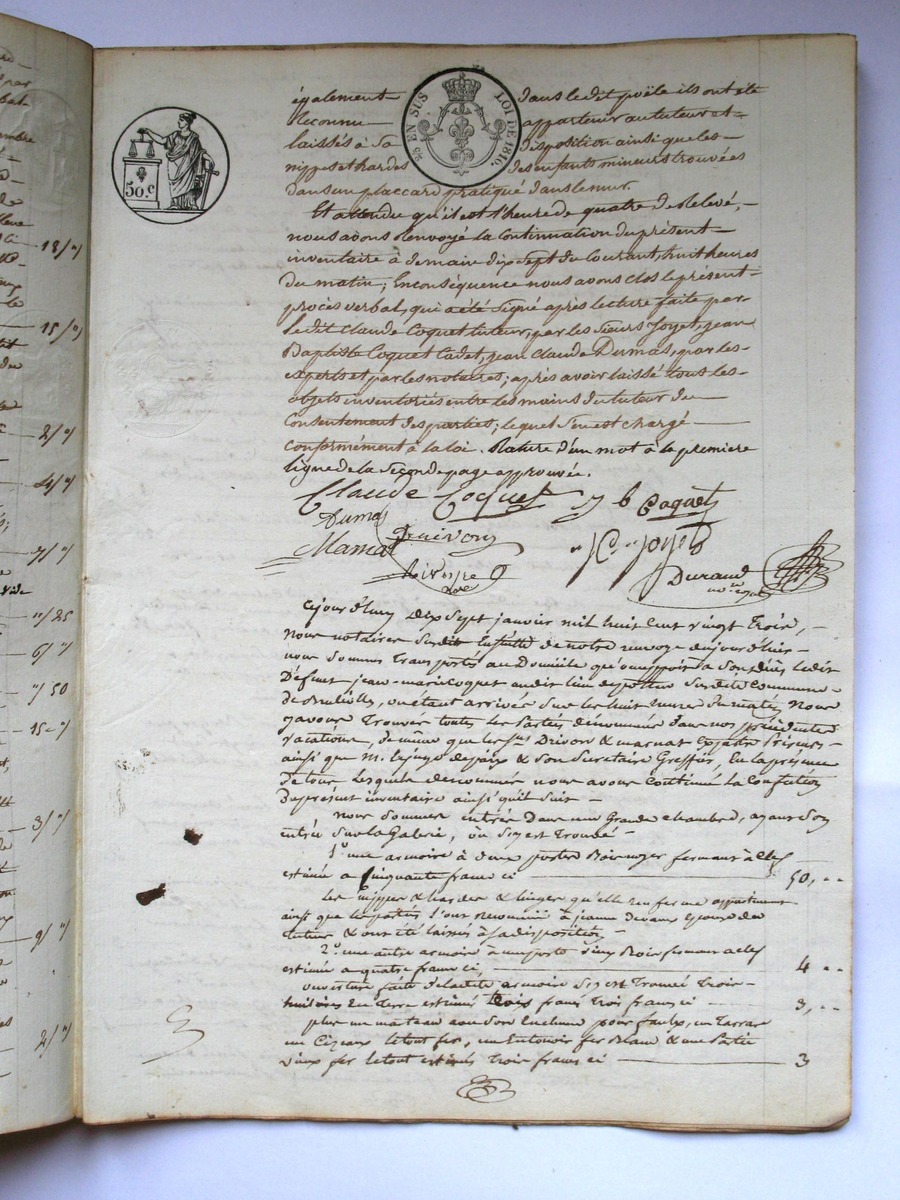 50. C
EN SUS LOI DE 1816.
également dans le dit poële ils ont été
Reconnu appartenir au tuteur et
laissés à Sa disposition ainsi que les
nippes et hardes des enfants mineurs trouvées
dans un placcard pratiqué dans le mur.
Et attendu qu'il est l'heure de quatre de Relevé,
nous avons Renvoyé la Continuation du présent
inventaire à demain dix sept du Courant, huit heures
du matin; En conséquence nous avons clos le présent
procès verbal, qui a été Signé après lecture faite par
le dit Claude Coquet tuteur, par les Sieurs Joyet, jean
Baptiste Coquet Cadet, jean Claude Dumas, par les
experts et par les notaires; après avoir laissé tous les
objets inventoriés entre les mains du tuteur du
Consentement des parties; lequel s'en est chargé
conformément à la loi. Rature d'un mot à la premiere
ligne de la Seconde page approuvée.
Claude Coquet J b Coquet
Dumas
Marnat Joyet
Durand
Cejourd'huy Dix Sept janvier mil huit Cent vingt Trois,
Nous notaires Susdit Ensuitte de notre renvoye dejourd'hier
nous Sommes Transportés au Domicile qu'occuppoit a Son décès ledit
Défunt jean-marie Coquet audit lieu Susditte Commune
de Brullioles, ou étant arrivés Sur les huit heures du matin, Nous
y avons Trouvés toutes les Parties dénommées dans nos précédentes
vacations, de même que les Srs Drivon & marnat Experts Priseurs
ainsi que M. Le juge de paix & Son Secretaire Greffier, En la présence
De tous Lesquels denommés nous avons Continué la Confection
Du présent inventaire ainsi qu'il Suit
nous Sommes entrés Dans une Grande chambre, ayant Son
entrée Sur la Galerie, ou S'y est Trouvé
1.° une armoire à deux portes Bois noyer fermant à Clef
estimée a Cinquante francs ci 50,
Les nippes & hardes & linges qu'elle renferme appartiennent
ainsi que les parties l'ont reconnu à jeanne Devaux epouse du
tuteur & ont été laissés à Sa disposition
2.° une autre armoire à une porte Bois fermant a clef
estimée a quatre francs ci, 4
ouverture faite de la ditte armoire S'y est Trouvé Trois
En Terre estimés Trois francs ci 3,
plus un marteau avec Son Enclume pour faulx, un Tarrare
un Cizeaux le tout fer, un Entonoir fer Blanc & une Partie
vieux fer le tout estimés Trois francs ci 3
13 /"
15 /"
2/ "
4/ "
7/ "
"/ 25
6/ "
"/ 50
15 "
3/ "
9/ "
2/ "